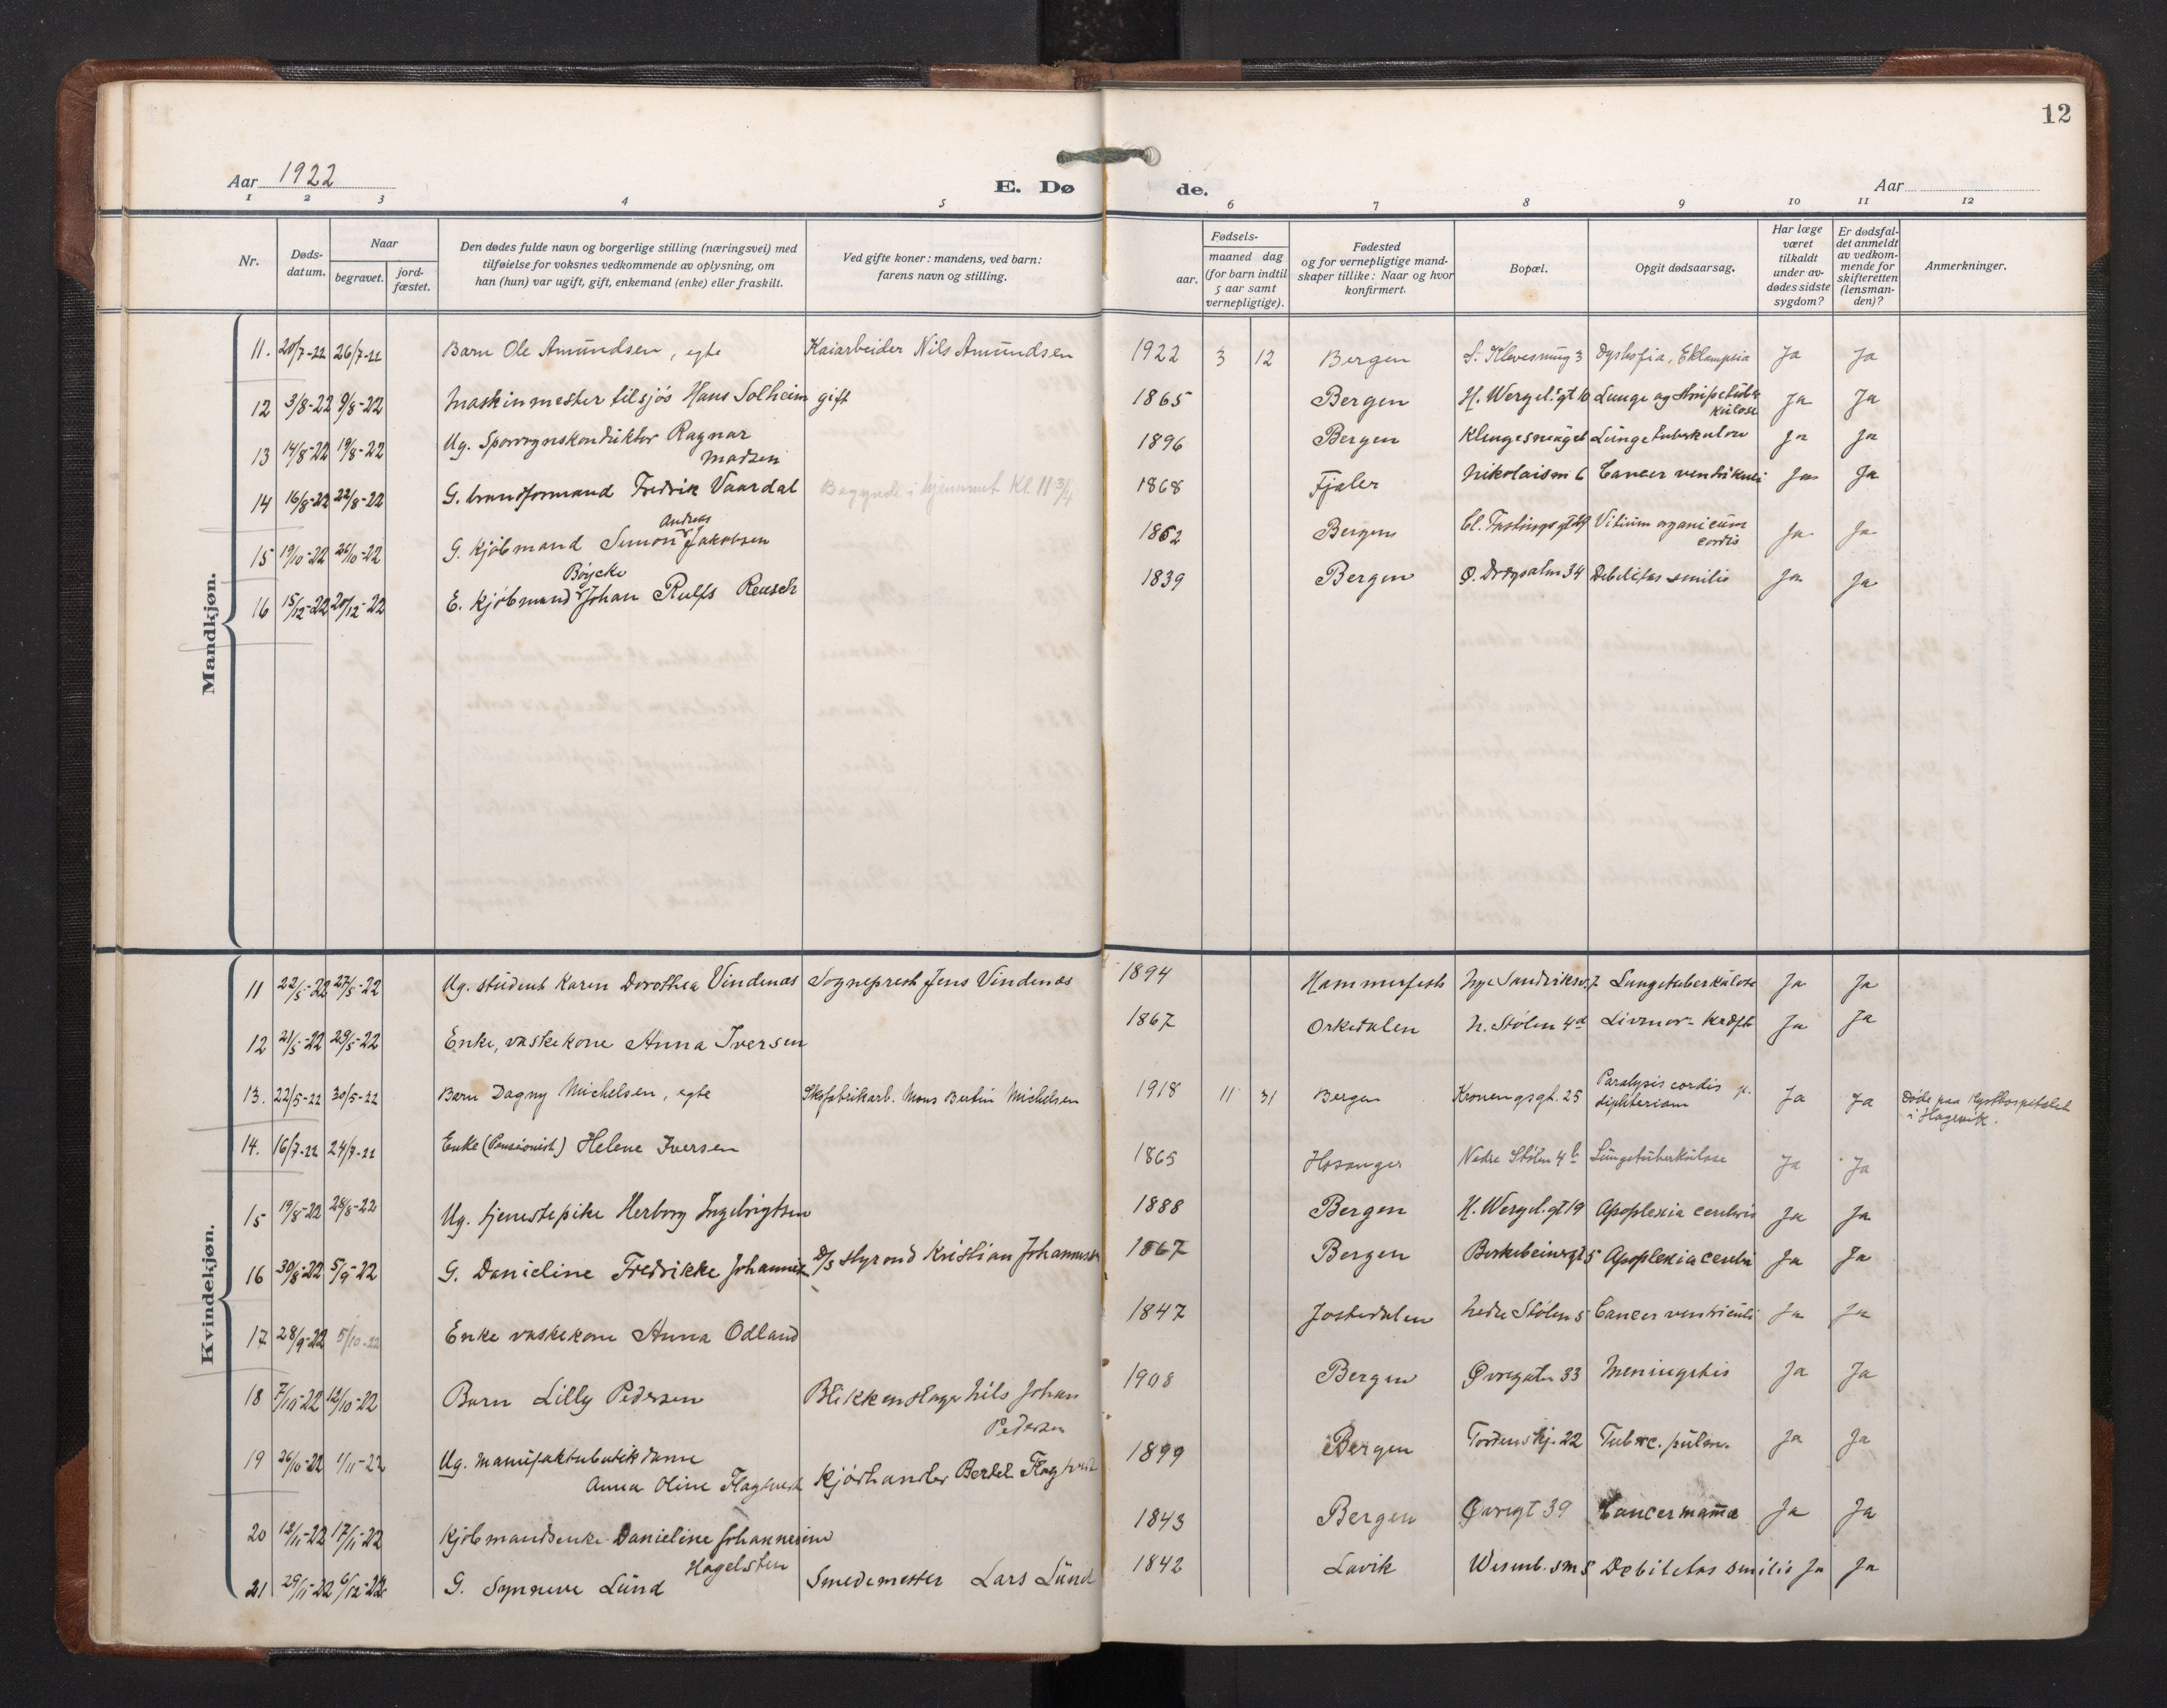 12
Aar 1922
E. Dø
de.
Aar
1 2 3 4 5 6 7 8 9 10 11 12
Nr.
Døds-
datum.
Naar
begravet.
jord-
fæstet.
Den dødes fulde navn og borgerlige stilling (næringsvei) med
tilføielse for voksnes vedkommende av oplysning, om
han (hun) var ugift, gift, enkemand (enke) eller fraskilt.
Ved gifte koner: mandens, ved barn:
farens navn og stilling.
Fødsels-
aar.
maaned dag
(for barn indtil
5 aar samt
vernepligtige).
Fødested
og for vernepligtige mand-
skaper tillike: Naar og hvor
konfirmert.
Bopæl.
Opgit dødsaarsag.
Har læge
været
tilkaldt
under av-
dødes sidste
sygdom?
Er dødsfal-
det anmeldt
av vedkom-
mende for
skifteretten
(lensman-
den)?
Anmerkninger.
Mandkjøn.
11. 20/7-22 26/7-22 Barn Ole Amundsen, egte Kaiarbeider Nils Amundsen 1922 3 12 Bergen 3 Eklampsia Ja Ja
12 3/8-22 9/8-22 Maskinmester tilsjøs Hans Solheim gift 1865 Bergen H. Wergel.gt 10 Lunge og Strupetuber
kulose Ja Ja
13 14/8-22 19/8-22 Ug. Sporvognskonduktør Ragnar
Madsen 1896 Bergen Lungetuberkulose Ja Ja
14 16/8-22 22/8-22 G. brandformand Fredrik Vaardal Begynde i hjemmet Kl. 11 3/4 1868 Fjaler Nikolaism 6 Cancer ventrikuli Ja Ja
15 19/10-22 26/10-22 G. Kjøbmand Simon Andreas Jakobsen 1862 Bergen Vitium organicum
cordis Ja Ja
16 15/12-22 20/12-22 E. Kjøbmand Johan Böycke Rulfs Reusch 1839 Bergen Ø. Drægsalm 34 Debilitas senilis Ja Ja
Kvindekjøn.
11 22/5-22 27/5-22 Ug. student Karen Dorothea Vindenæs Sogneprest Jens Vindenæs 1894 Hammerfest Nye Sandviksv. 7 Lungetuberkulose Ja Ja
12 21/5-22 29/5-22 Enke, vaskekone Anna Iversen 1867 Orkedalen N. Stølen 4d Livmor-Kræft Ja Ja
13. 22/5-22 30/5-22 Barn Dagny Michelsen, egte Skofabrikarb. Mons Bertin Michelsen 1918 11 31 Bergen 25 Paralysis cordis p.
diphteriam Ja Ja Døde paa Kysthospitalet
i Hagevik.
14. 16/7-22 24/7-22 Enke (Pensionist) Helene Iversen 1865 Hosanger Nedre Stølen 4b Lungetuberkulose Ja Ja
15 19/8-22 28/8-22 Ug. tjenestepike Herborg Ingebrigtsen 1888 Bergen H. Wergel.gt 19 Apoplexia cerebri Ja Ja
16 30/8-22 5/9-22 G. Danieline Fredrikke Johannesen D/S styrmd Kristian Johannessen 1867 Bergen Birkebeinergt 5 Apoplexia cerebri Ja Ja
17 28/9-22 5/10-22 Enke vaskekone Anna Odland 1847 Jostedalen Nedre Stølen 5 Cancer ventriculi Ja Ja
18 7/10-22 12/10-22 Barn Lilly Pedersen Blikkenslager Nils Johan
Pedersen 1908 Bergen Øvregaten 33 Meningitis Ja Ja
19 26/10-22 1/11-22 Ug. manufakturbutikdame
Anna Oline Flagtvedt Kjøthandler Bertel Flagtvedt 1899 Bergen Tordenskj. 22 Tuberc. pulm. Ja Ja
20 12/11-22 17/11-22 Kjøbmandsenke Danieline Johannesine
Hagelsten 1843 Bergen Øvregt 39 Cancer mamma Ja Ja
21 29/11-22 6/12-22 G. Synneve Lund Smedemester Lars Lund 1842 Lavik Wesenb. sm 5 Debilitas senilis Ja Ja